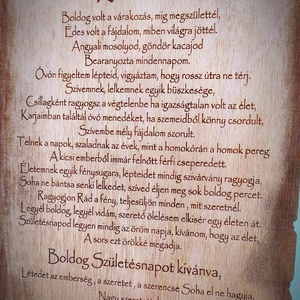 Boldog volt a várakozás, míg megszülettél,
Édes volt a fájdalom, miben világra jöttél.
Angyali mosolyod, göndör kacajod
Bearanyozta mindennapom.
Óvón figyeltem lépteid, vigyáztam, hogy rossz útra ne térj.
Szivemnek, lelkemnek egyik büszkesége,
Csillagként ragyogsz a végtelenbe ha igazságtalan volt az élet,
Karjaimban találtál óvó menedéket, ha szemeidből könny csordult,
Szívembe mély fájdalom szorult.
Telnek a napok, szaladnak az évek, mint a homokórán a homok pereg
A kicsi emberből immár felnőtt férfi cseperedett.
Életemnek egyik fénysugara, lépteidet mindig szivárvány ragyogja,
Soha ne bántsa senki lelkedet, szíved éljen meg sok boldog percet.
Ragyogjon Rád a fény, teljesüljön minden, mit szeretnél.
Legyél boldog, legyél vidám, szerető ölelésem elkísér egy életen át.
Születésnapod legyen mindig az öröm napja, kívánom, hogy az élet,
A sors ezt örökké megadja.
Boldog Születésnapot kívánva,
Létedet az emberség, a szeretet, a szerencse Soha el ne hagyja,